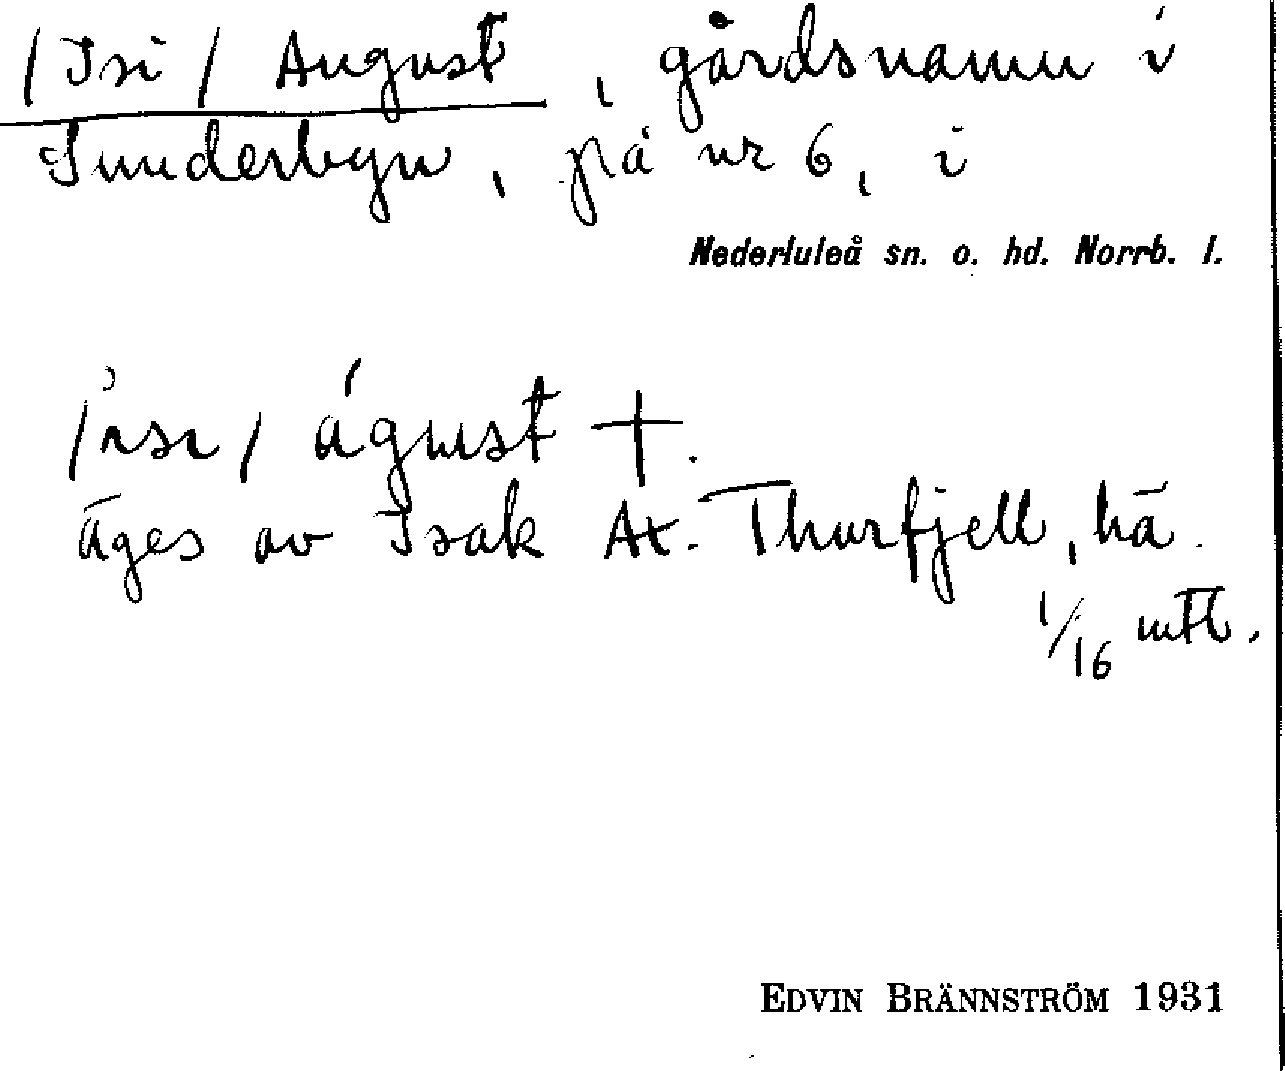 /Isi/ August, gårdsnamn i
Sunderbyn, på nr 6, i
Nederluleå sn. o. hd. Norrb. l.
águst +.
äges av Isak At. Thurfjell, hä.
1/16 mtl.
EDVIN BRÄNNSTRÖM 1931